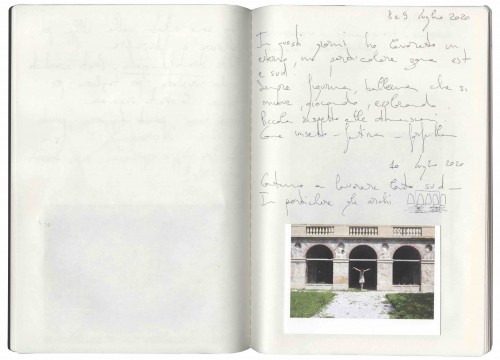 8 e 9 luglio 2020
In questi giorni ho lavorato in
esterno, in particolare zona est
e sud
Sempre figurina, ballerina che si
muove, giocando, esplorando.
Piccola rispetto alle dimensioni
Come insetto - fatina - farfallina
10 luglio 2020
Continuo a lavorare lato sud -
In particolare gli archi